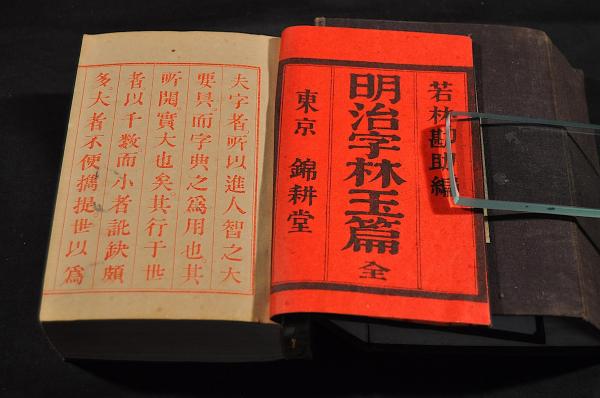 若林勘助編
明治字林玉篇 全
東京 錦耕堂
夫字者。所以進人智之大
要具。而字典之爲用也。其
所関實大也矣。其行于世
者以千數。而小者訛缺頗
多。大者不便攜提世以爲